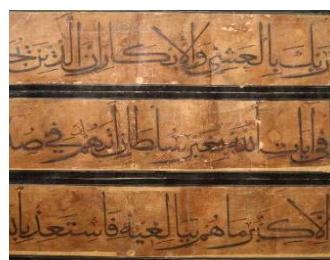 ربك بالعشي والابكار ان الذين
في ايات الله بغير سلطان اتهم ان في صد
الا كبر ما هم ببالغيه فاستعذ با